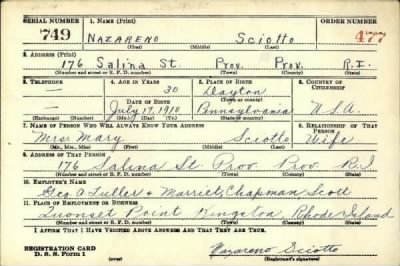 SERIAL NUMBER 1. NAME (Print) ORDER NUMBER
749 NAZARENO Sciotto 477
(First) (Middle) (Last)
2. ADDRESS (Print)
176 Salina St. Prov. Prov. R.I.
(Number and street or R. F. D. number) (Town) (County) (State)
3. TELEPHONE 4. AGE IN YEARS 5. PLACE OF BIRTH 6. COUNTRY OF CITIZENSHIP
— 30 Dayton
DATE OF BIRTH (Town or county)
— July 17, 1910 Pennsylvania U.S.A.
(Exchange) (Number) (Mo.) (Day) (Yr.) (State or country)
7. NAME OF PERSON WHO WILL ALWAYS KNOW YOUR ADDRESS 8. RELATIONSHIP OF THAT PERSON
Mrs. Mary Sciotto Wife
(Mr., Mrs., Miss) (First) (Middle) (Last)
9. ADDRESS OF THAT PERSON
176 Salina St. Prov. Prov. R.I.
(Number and street or R. F. D. number) (Town) (County) (State)
10. EMPLOYER'S NAME
Geo. A Fuller & Merritt, Chapman Scott
11. PLACE OF EMPLOYMENT OR BUSINESS
Quonset Point Kingston, Rhode Island
(Number and street or R. F. D. number) (Town) (County) (State)
I AFFIRM THAT I HAVE VERIFIED ABOVE ANSWERS AND THAT THEY ARE TRUE.
REGISTRATION CARD
D. S. S. Form 1 (over) Nazareno Sciotto
(Registrant's signature)